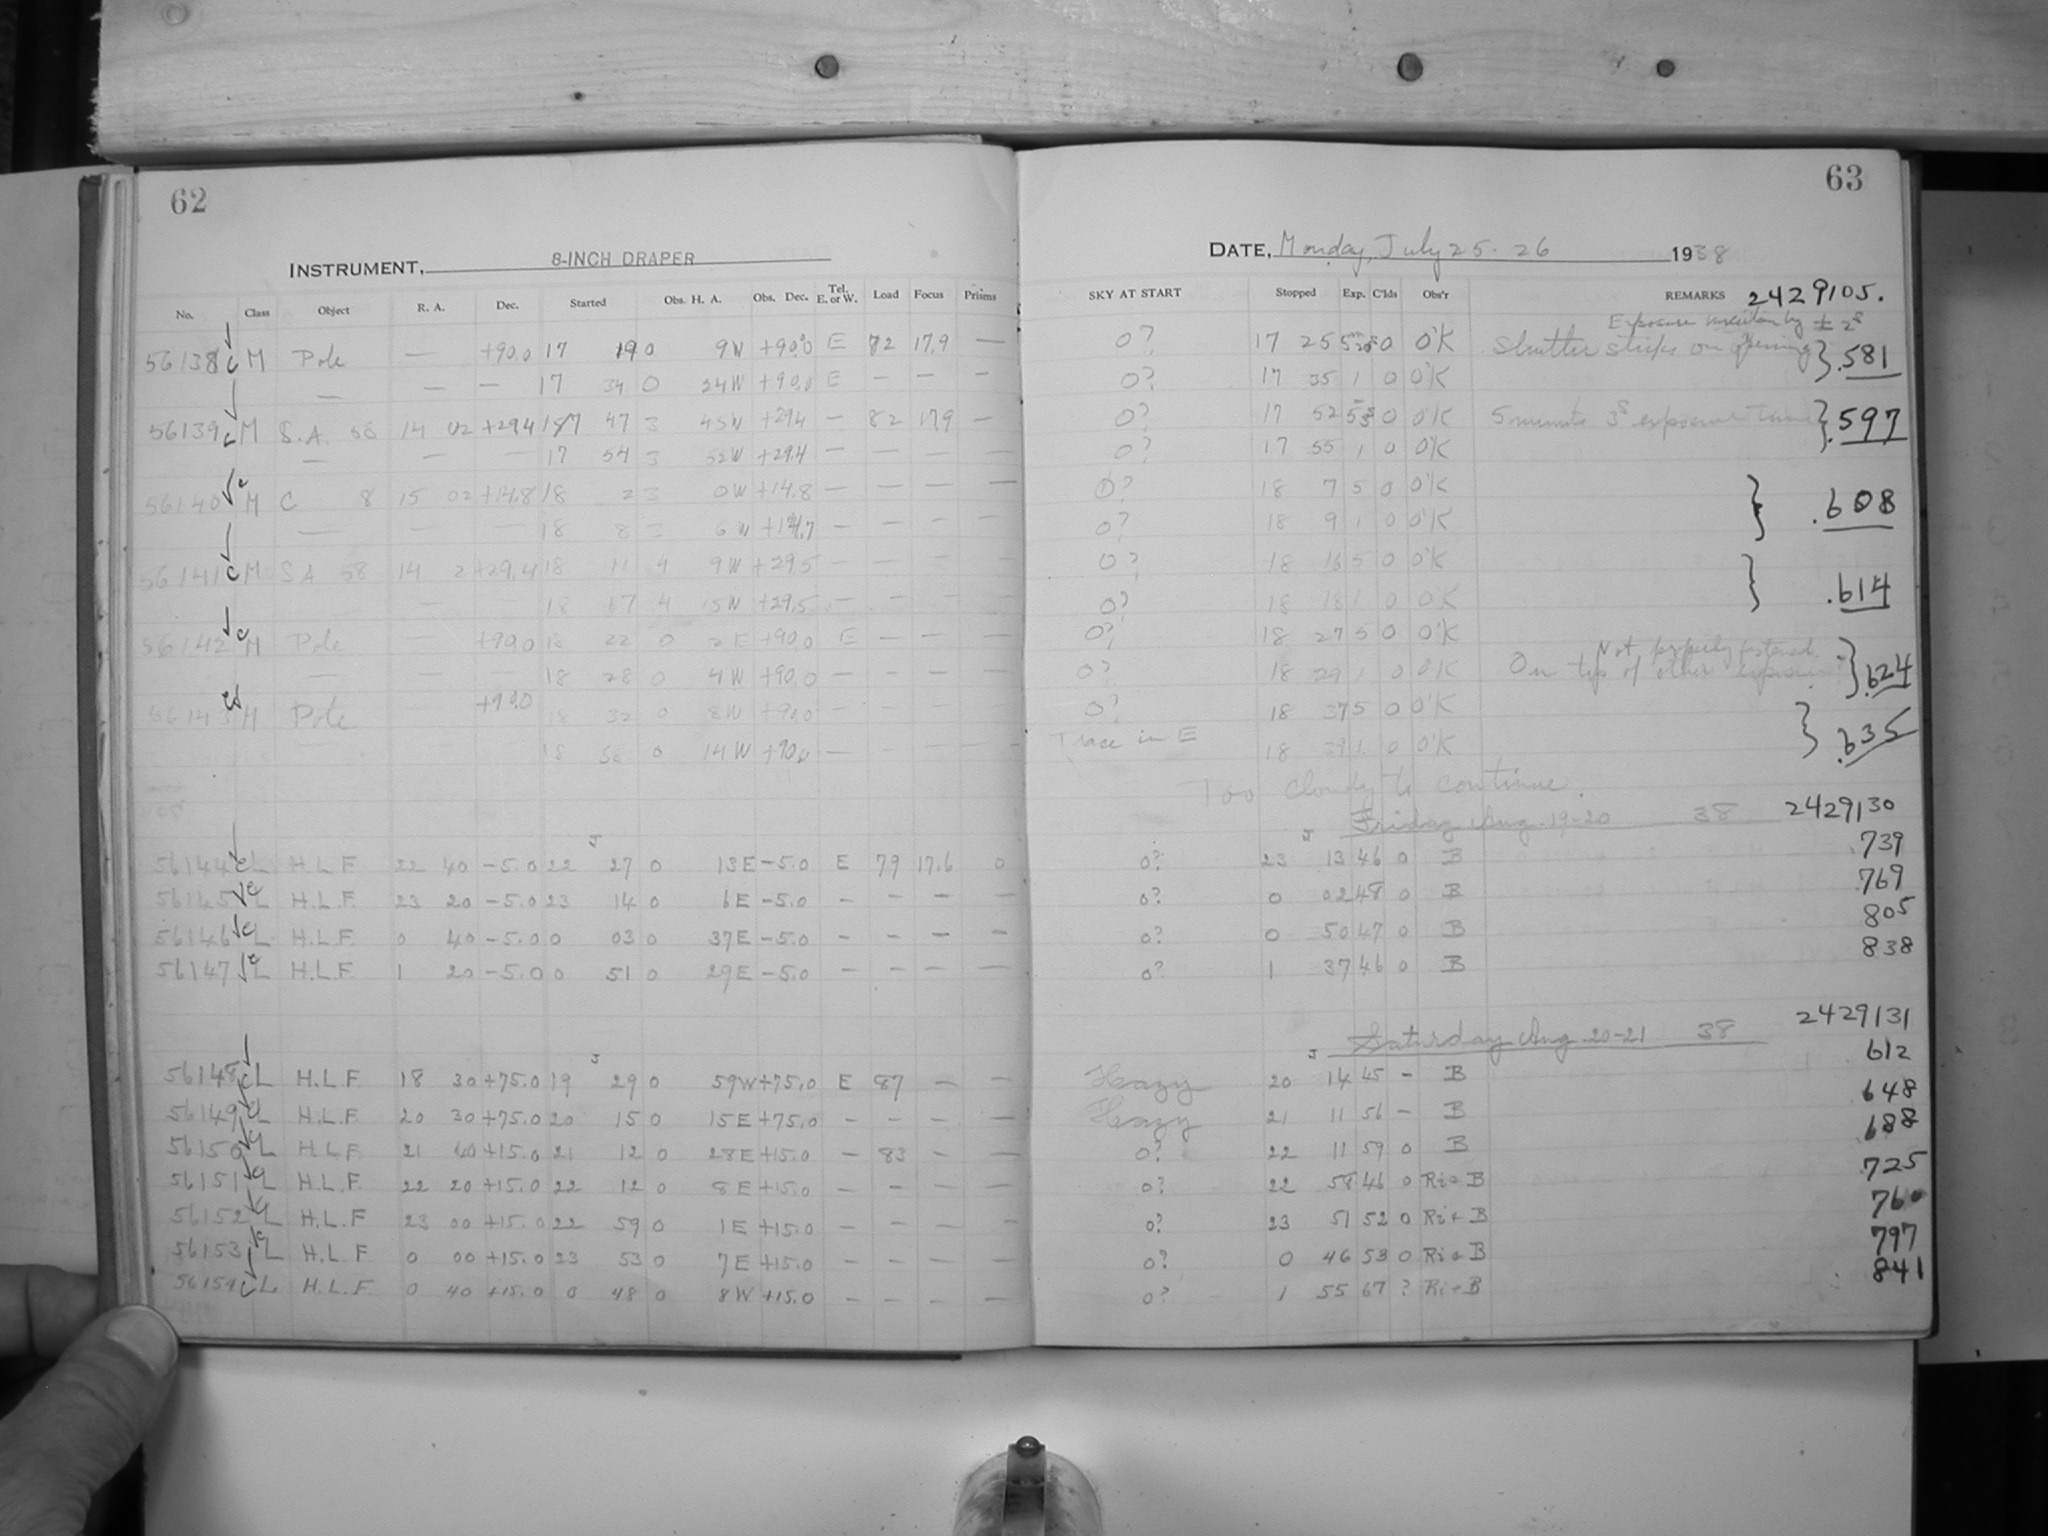 62
INSTRUMENT, 8-INCH DRAPER
No. Class Object R. A. Dec. Started Obs. H. A. Obs. Dec. Tel. E. or W. Load Focus Prisms
56138 c M Pole — +90.0 17 19 0 9W +90.0 E 82 17.9 —
— — — 17 34 0 24W +90.0 E — — —
56139 c M S.A. 58 14 02 +29.4 17 47 3 45W +29.4 — 82 17.9 —
— — — 17 54 3 52W +29.4 — — — —
56140 c M C 8 15 02 +14.8 18 2 3 0W +14.8 — — — —
— — — 18 8 3 6W +14.7 — — — —
56141 c M S A 58 14 2 +29.4 18 11 4 9W +29.5 — — — —
— — 18 17 4 15W +29.5 — — — —
56142 c M Pole +90.0 18 22 0 2E +90.0 E — — —
— — — 18 28 0 4W +90.0 — — — —
56143 c M Pole +90.0 18 32 0 8W +90.0 — — — —
18 58 0 14W +90.0 — — — —
J
56144 c L H.L.F. 22 40 -5.0 22 27 0 13E -5.0 E 79 17.6 0
56145 c L H.L.F. 23 20 -5.0 23 14 0 6E -5.0 - - - -
56146 c L H.L.F. 0 40 -5.0 0 03 0 37E -5.0 - - - -
56147 c L H.L.F. 1 20 -5.0 0 51 0 29E -5.0 - - - -
J
56148 c L H.L.F. 18 30 +75.0 19 29 0 59W +75.0 E 87 - -
56149 c L H.L.F. 20 30 +75.0 20 15 0 15E +75.0 - - - -
56150 c L H.L.F. 21 40 +15.0 21 12 0 28E +15.0 - 83 - -
56151 c L H.L.F. 22 20 +15.0 22 12 0 8E +15.0 - - - -
56152 c L H.L.F 23 00 +15.0 22 59 0 1E +15.0 - - - -
56153 c L H.L.F 0 00 +15.0 23 53 0 7E +15.0 - - - -
56154 c L H.L.F 0 40 +15.0 0 48 0 8W +15.0 - - - -
63
DATE, Monday, July 25-26 1938
SKY AT START Stopped Exp. C'lds Obs'r REMARKS 2429105.
Exposure uncertain by ± 2s
0? 17 25 5m 28s 0 O'K Shutter sticks on opening } .581
0? 17 35 1 0 O'K
0? 17 52 5 3 0 O'K 5 minute 3s exposure time } .597
0? 17 55 1 0 O'K
0? 18 7 5 0 O'K } .608
0? 18 9 1 0 O'K
0? 18 16 5 0 O'K } .614
0? 18 18 1 0 O'K
0? 18 27 5 0 O'K
Not properly fastened.
0? 18 29 1 0 O'K On top of other exposure } .624
0? 18 37 5 0 O'K } .635
Trace in E 18 39 1 0 O'K
Too cloudy to continue.
Friday Aug. 19-20 38 2429130
J
0? 23 13 46 0 B .739
0? 0 02 48 0 B .769
0? 0 50 47 0 B 805
0? 1 37 46 0 B 838
Saturday Aug 20-21 38 2429131
J
Hazy 20 14 45 - B 612
Hazy 21 11 56 - B 648
0? 22 11 59 0 B 688
0? 22 58 46 0 Ri+B 725
0? 23 51 52 0 Ri+B 760
0? 0 46 53 0 Ri+B 797
0? 1 55 67 ? Ri+B 841